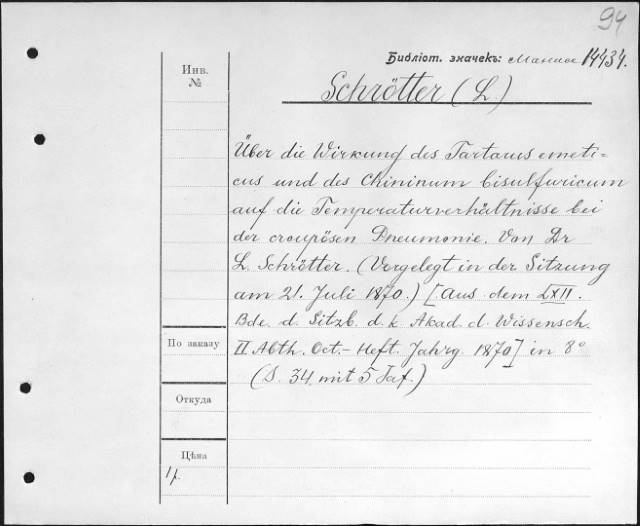 94
Библіот. значекъ: 14434.
Инв.
№
Schrötter (L)
Über die Wirkung des Tartarus emeti=
cus und des Chininum bisulfuricum
auf die Temperaturverhältnisse bei
der croupösen Pneumonie. Von Dr
L. Schrötter. (Vorgelegt in der Sitzung
am 21. Juli 1870.) [Aus dem LXII.
Bde. d. Sitzb. d. k. Akad. d. Wissensch.
II Abth. Oct.-Heft. Jahrg. 1870] in 8°
(S. 34 mit 5 Taf.)
По заказу
Откуда
Цѣна
1 р.